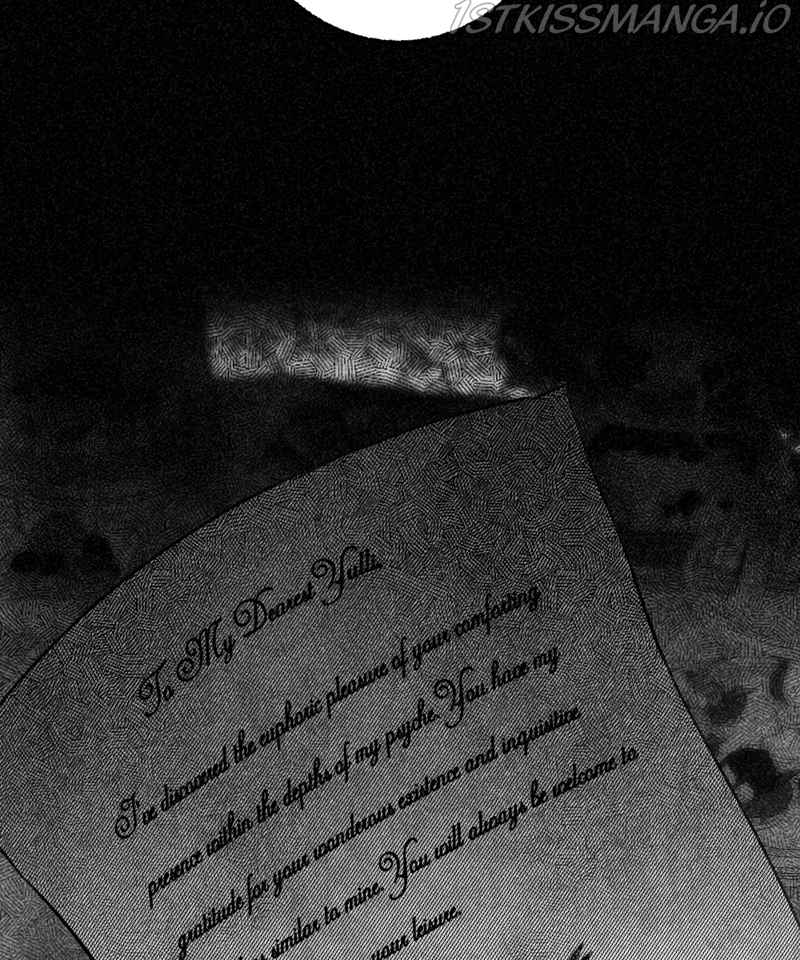 1STKISSMANGA.IO
To My Dearest Yulti.
I've discovered the euphoric pleasure of your comforting
presence within the depths of my psyche. You have my
gratitude for your wonderous existence and inquisitive
similar to mine. You will always be welcome to
your leisure.